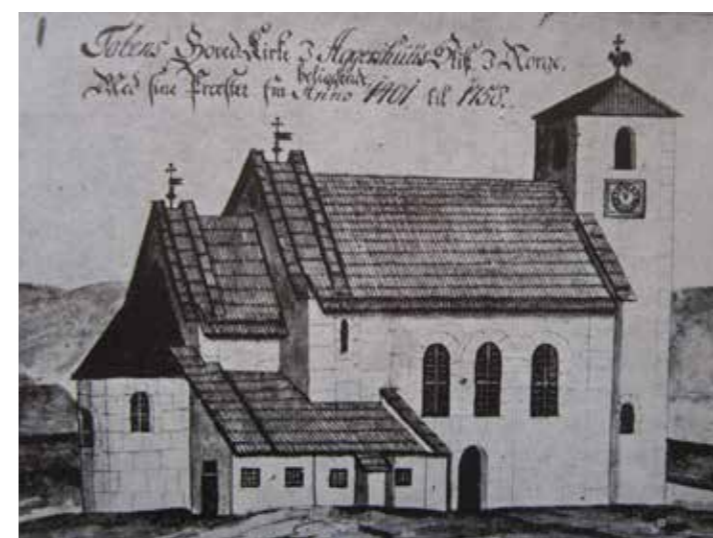 Totens Hoved Kirke J Aggershuus Stift J Norge.
beliggende
Med sine Præster fra Anno 1401 til 1758.